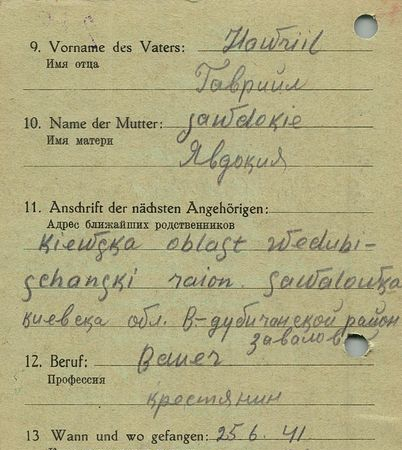 9. Vorname des Vaters: Hawriil
Имя отца
Гавриил
10. Name der Mutter: Jawdokie
Имя матери
Явдокия
11. Anschrift der nächsten Angehörigen:
Адрес ближайших родственников
Kiewska oblast Wedubi-
schanski raion. Sawalowka
киевска обл. В-дубичанской район
завалов
12. Beruf: Bauer
Профессия
крестянин
13 Wann und wo gefangen: 25 6. 41